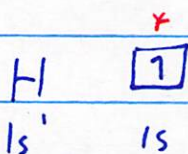 H 1
1s¹ 1s